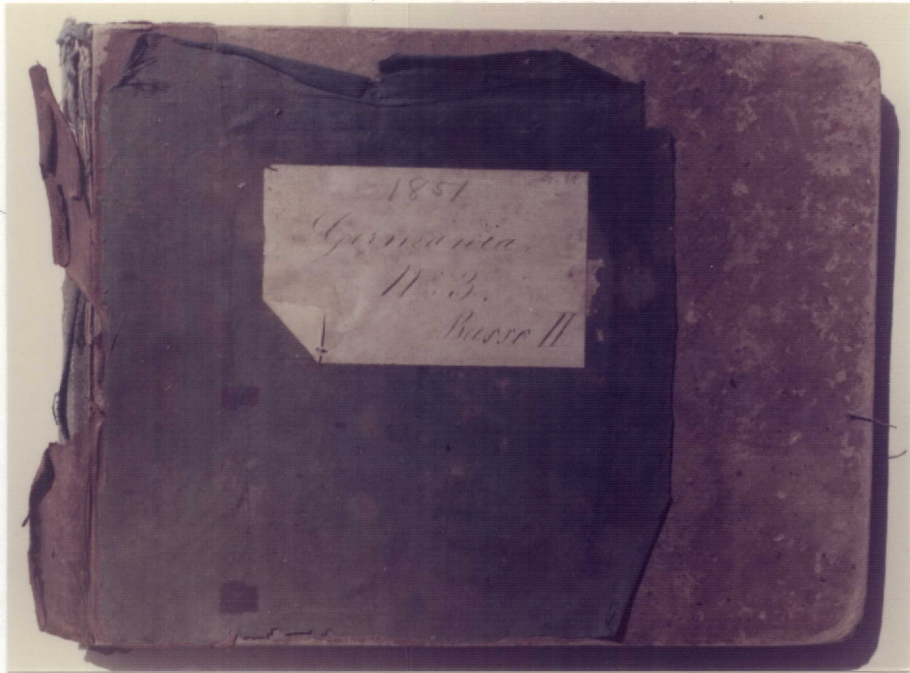 1851
Germania
No 3.
Basso II